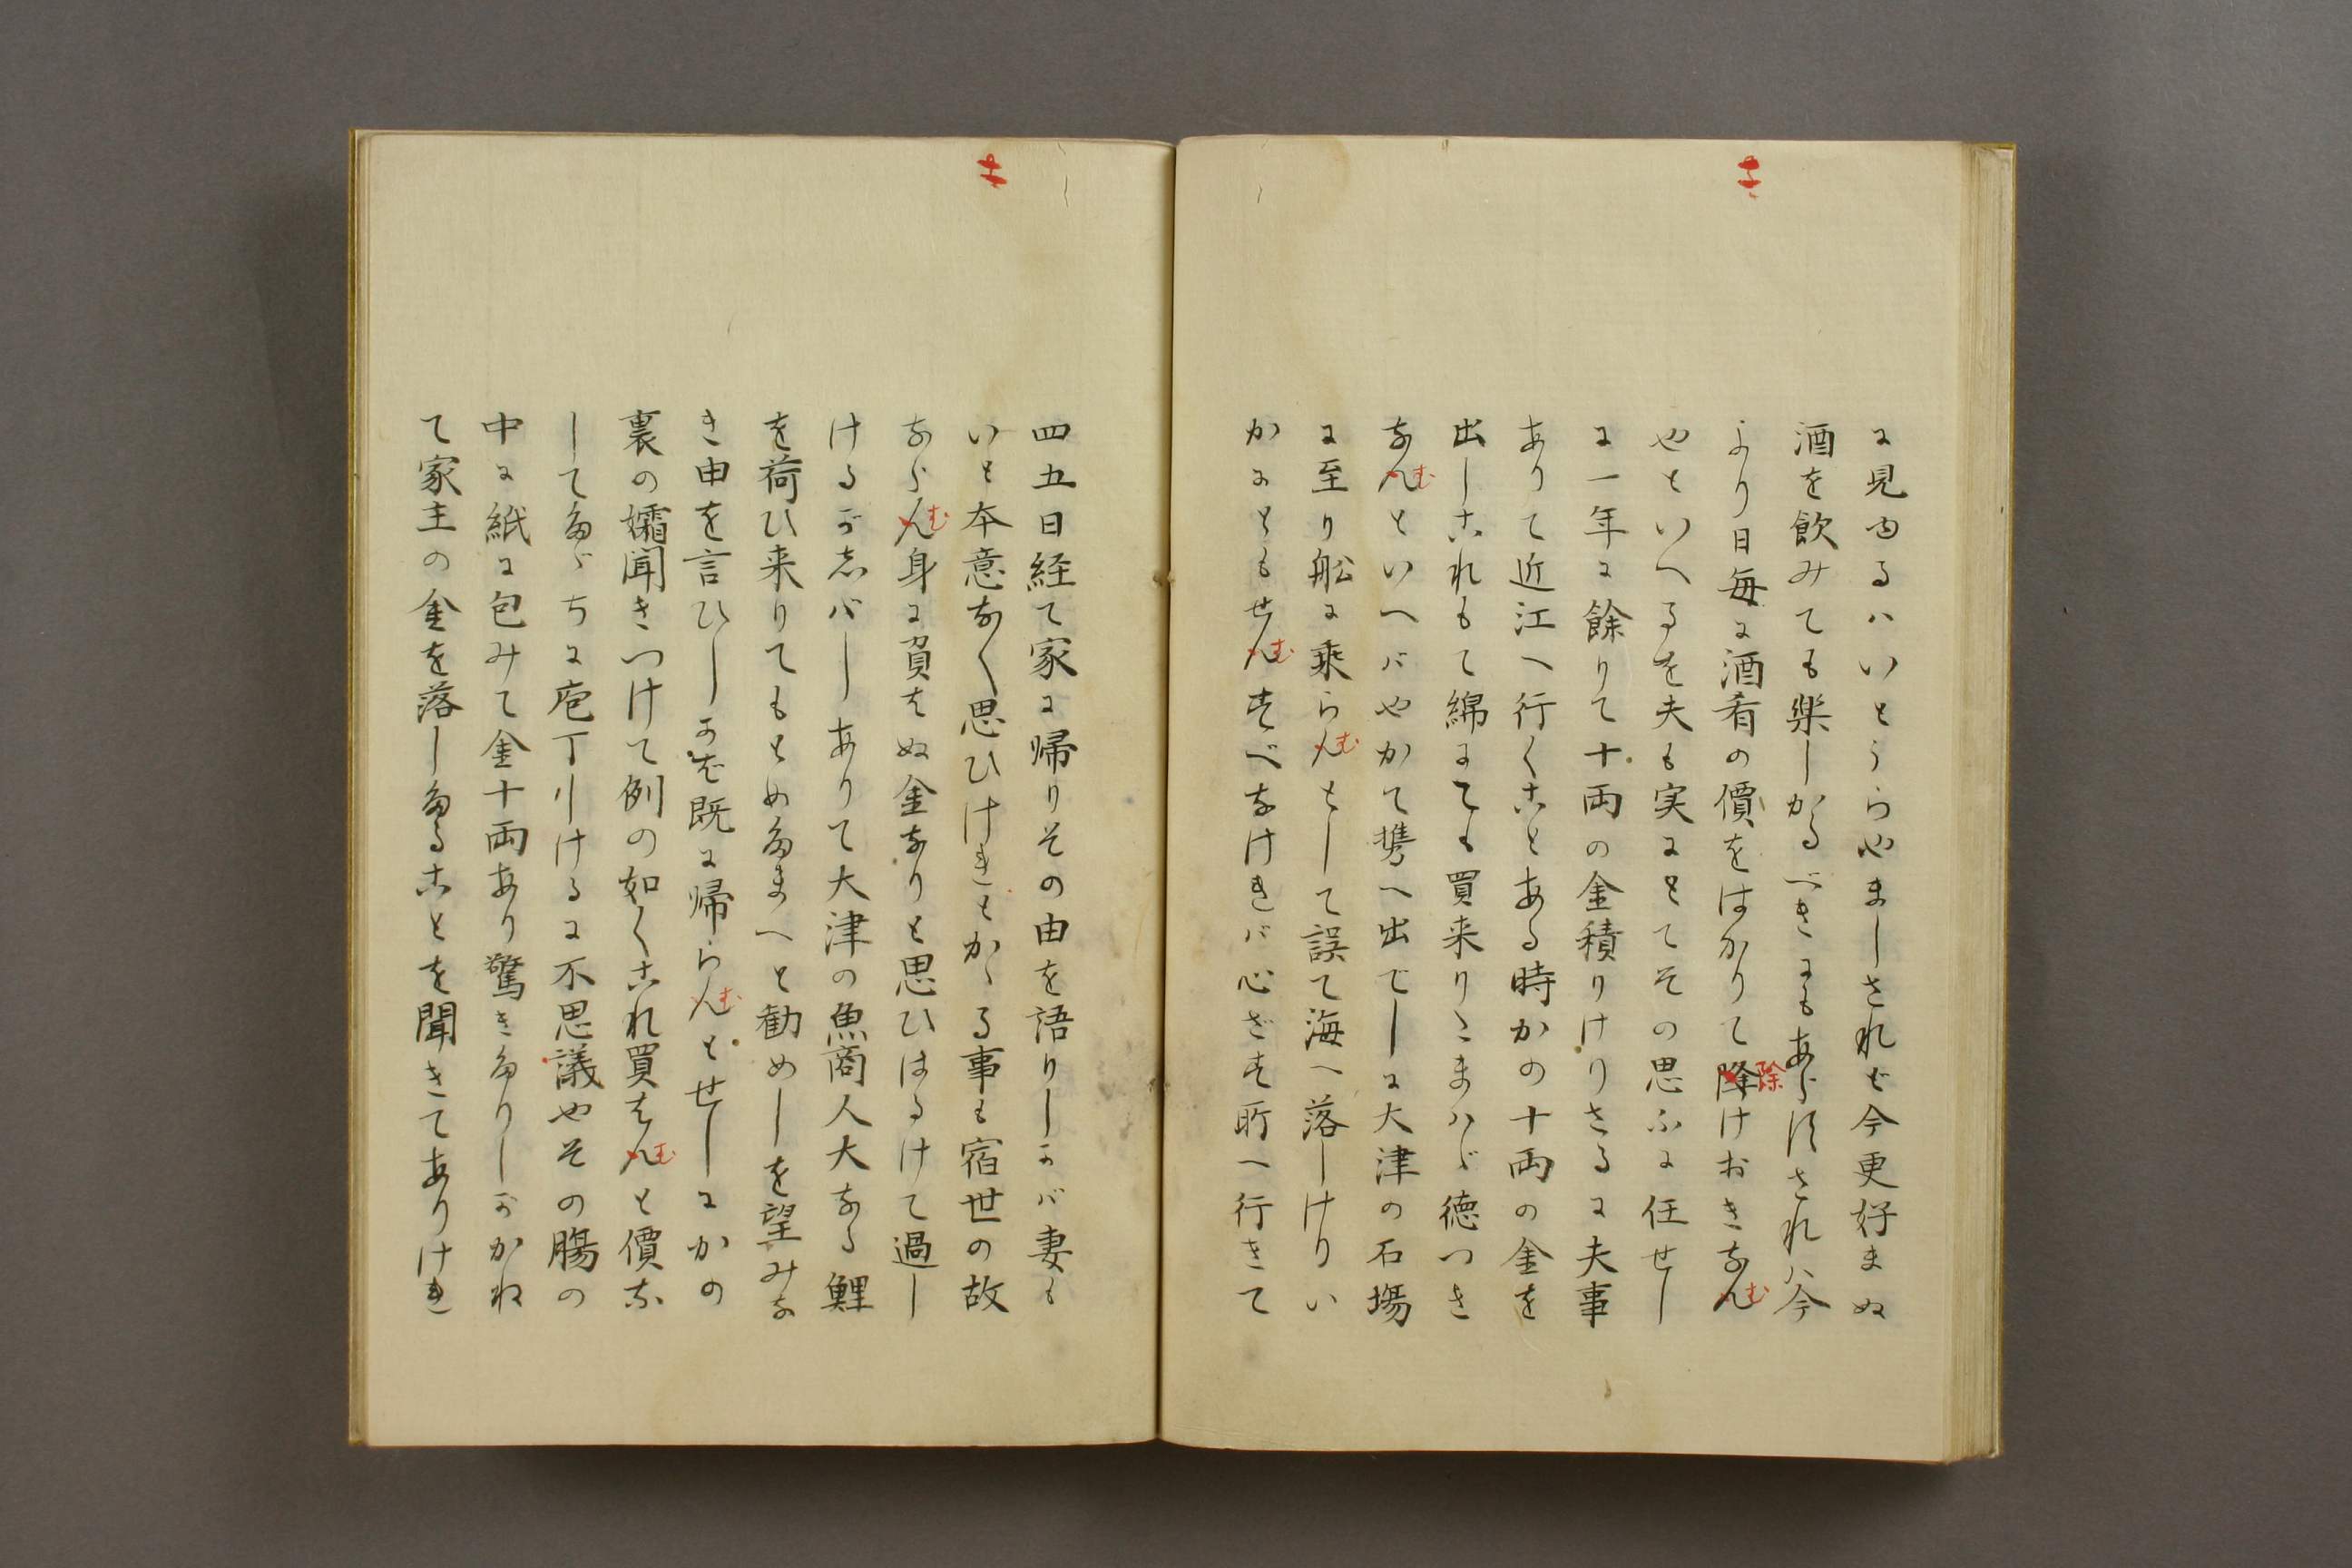 に見ゆるハいとうらやましされど今更好まぬ
酒を飲みても楽しかるべきにもあらずされハ今
より日毎に酒肴の價をはかりて降けおきなん
除
む
やといへるを夫も実にとてその思ふに任せし
に一年に餘りて十両の金積りけりさるに夫事
ありて近江へ行くことある時かの十両の金を
出しこれもて綿にても買来りたまハゞ徳つき
なんといへバやかて携へ出でしに大津の石場
む
に至り船に乗らんとして誤て海へ落しけりい
む
かにともせんすべなけれバ心ざす所へ行きて
む
四五日経て家に帰りその由を語りしかバ妻も
いと本意なく思ひけれとかゝる事も宿世の故
ならん身に負はぬ金なりと思ひはるけて過し
む
けるが志バしありて大津の魚商人大なる鯉
を荷ひ来りてもとめたまへと勧めしを望みな
き由を言ひしかば既に帰らんとせしにかの
む
裏の孀聞きつけて例の如くこれ買はんと價な
む
してたゞちに庖丁しけるに不思議やその腸の
中に紙に包みて金十両あり驚きたりしがかね
て家主の金を落したることを聞きてありけれ